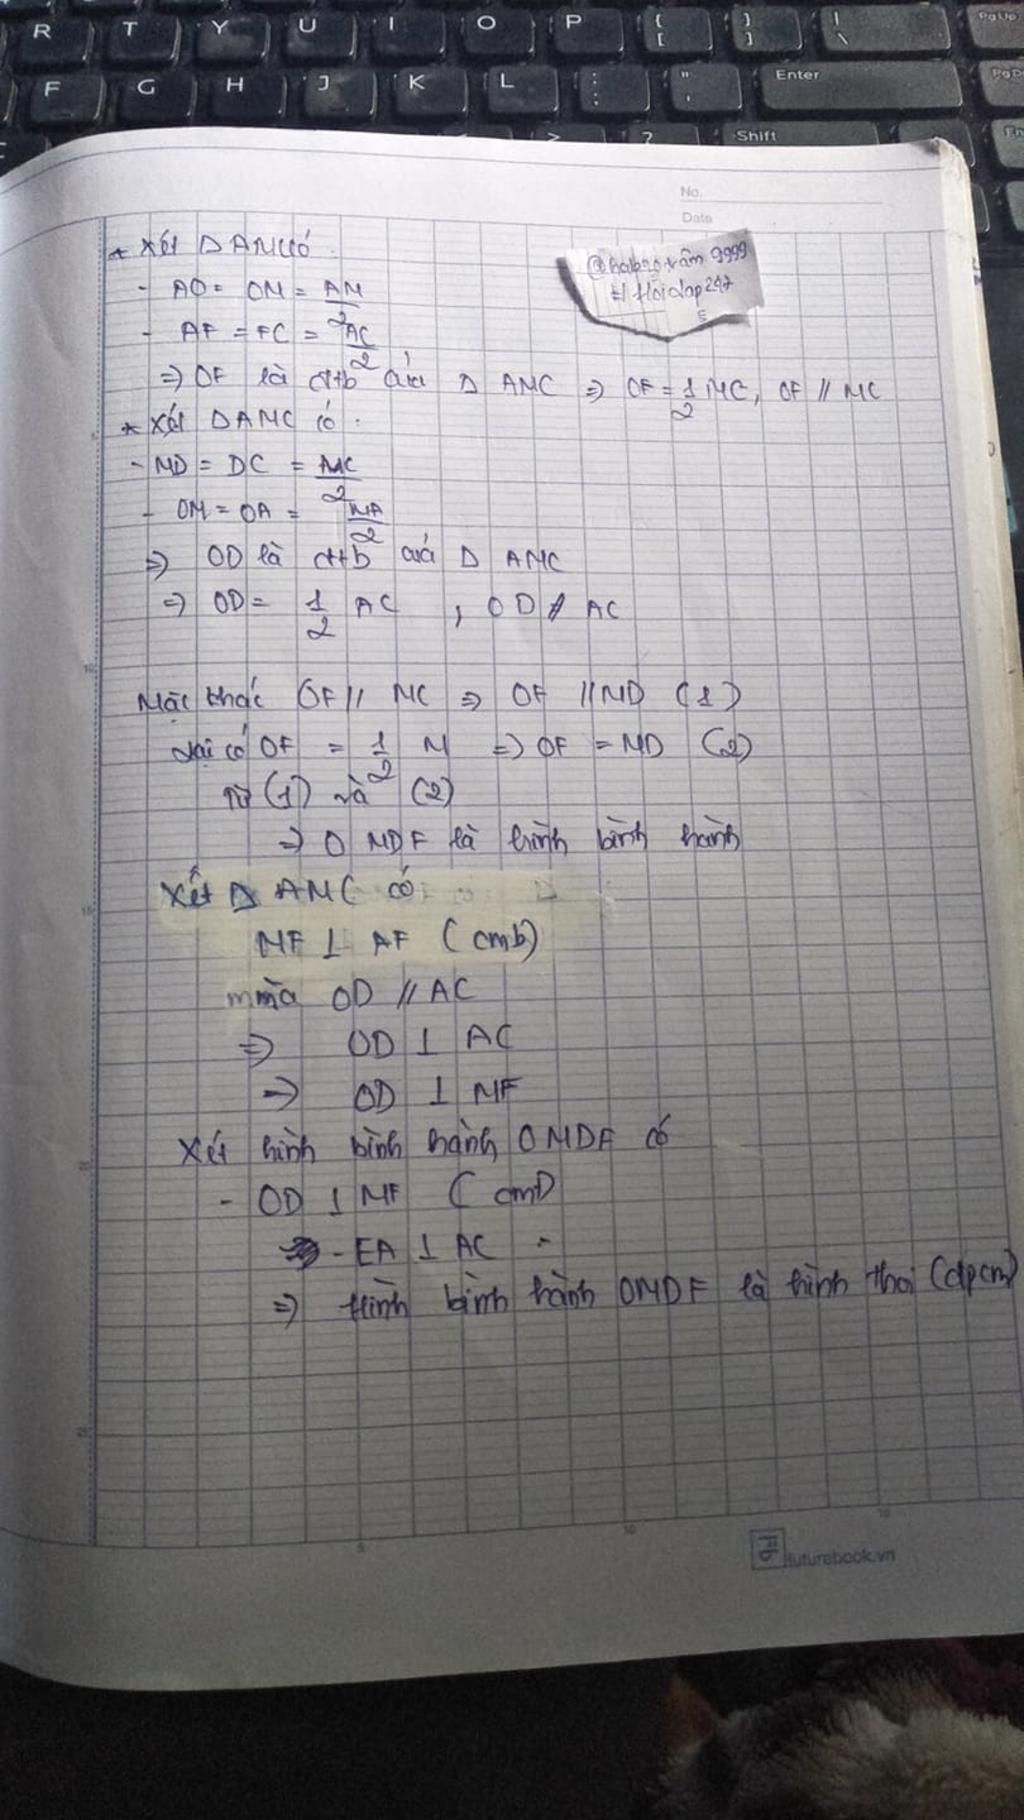 R T Y U I O P { [ } ] | \ PgUp
F G H J K L : ; " ' Enter
> ? Shift
No.
Date
* Xét Δ AMC có
@
9999
# Hoidap247
- AO = OM = AM/2
- AF = FC = AC/2
=> OF là đtb của Δ AMC => OF = 1/2 MC, OF // MC
* Xét Δ AMC có .
- MD = DC = MC/2
- OM = OA = MA/2
=> OD là đtb của Δ AMC
=> OD = 1/2 AC , OD // AC
Mặc khác OF // MC => OF // MD (1)
Lại có OF = 1/2 M => OF = MD (2)
Từ (1) và (2)
=> OMDF là hình bình hành
Xét Δ AMC có
MF ⊥ AF (cmb)
mà OD // AC
=> OD ⊥ AC
=> OD ⊥ MF
Xét hình bình hành OMDF có
- OD ⊥ MF (cmt)
- EA ⊥ AC
=> Hình bình hành OMDF là hình thoi (đpcm)
5
10
15
20
25
5
10
15
futurebook.vn